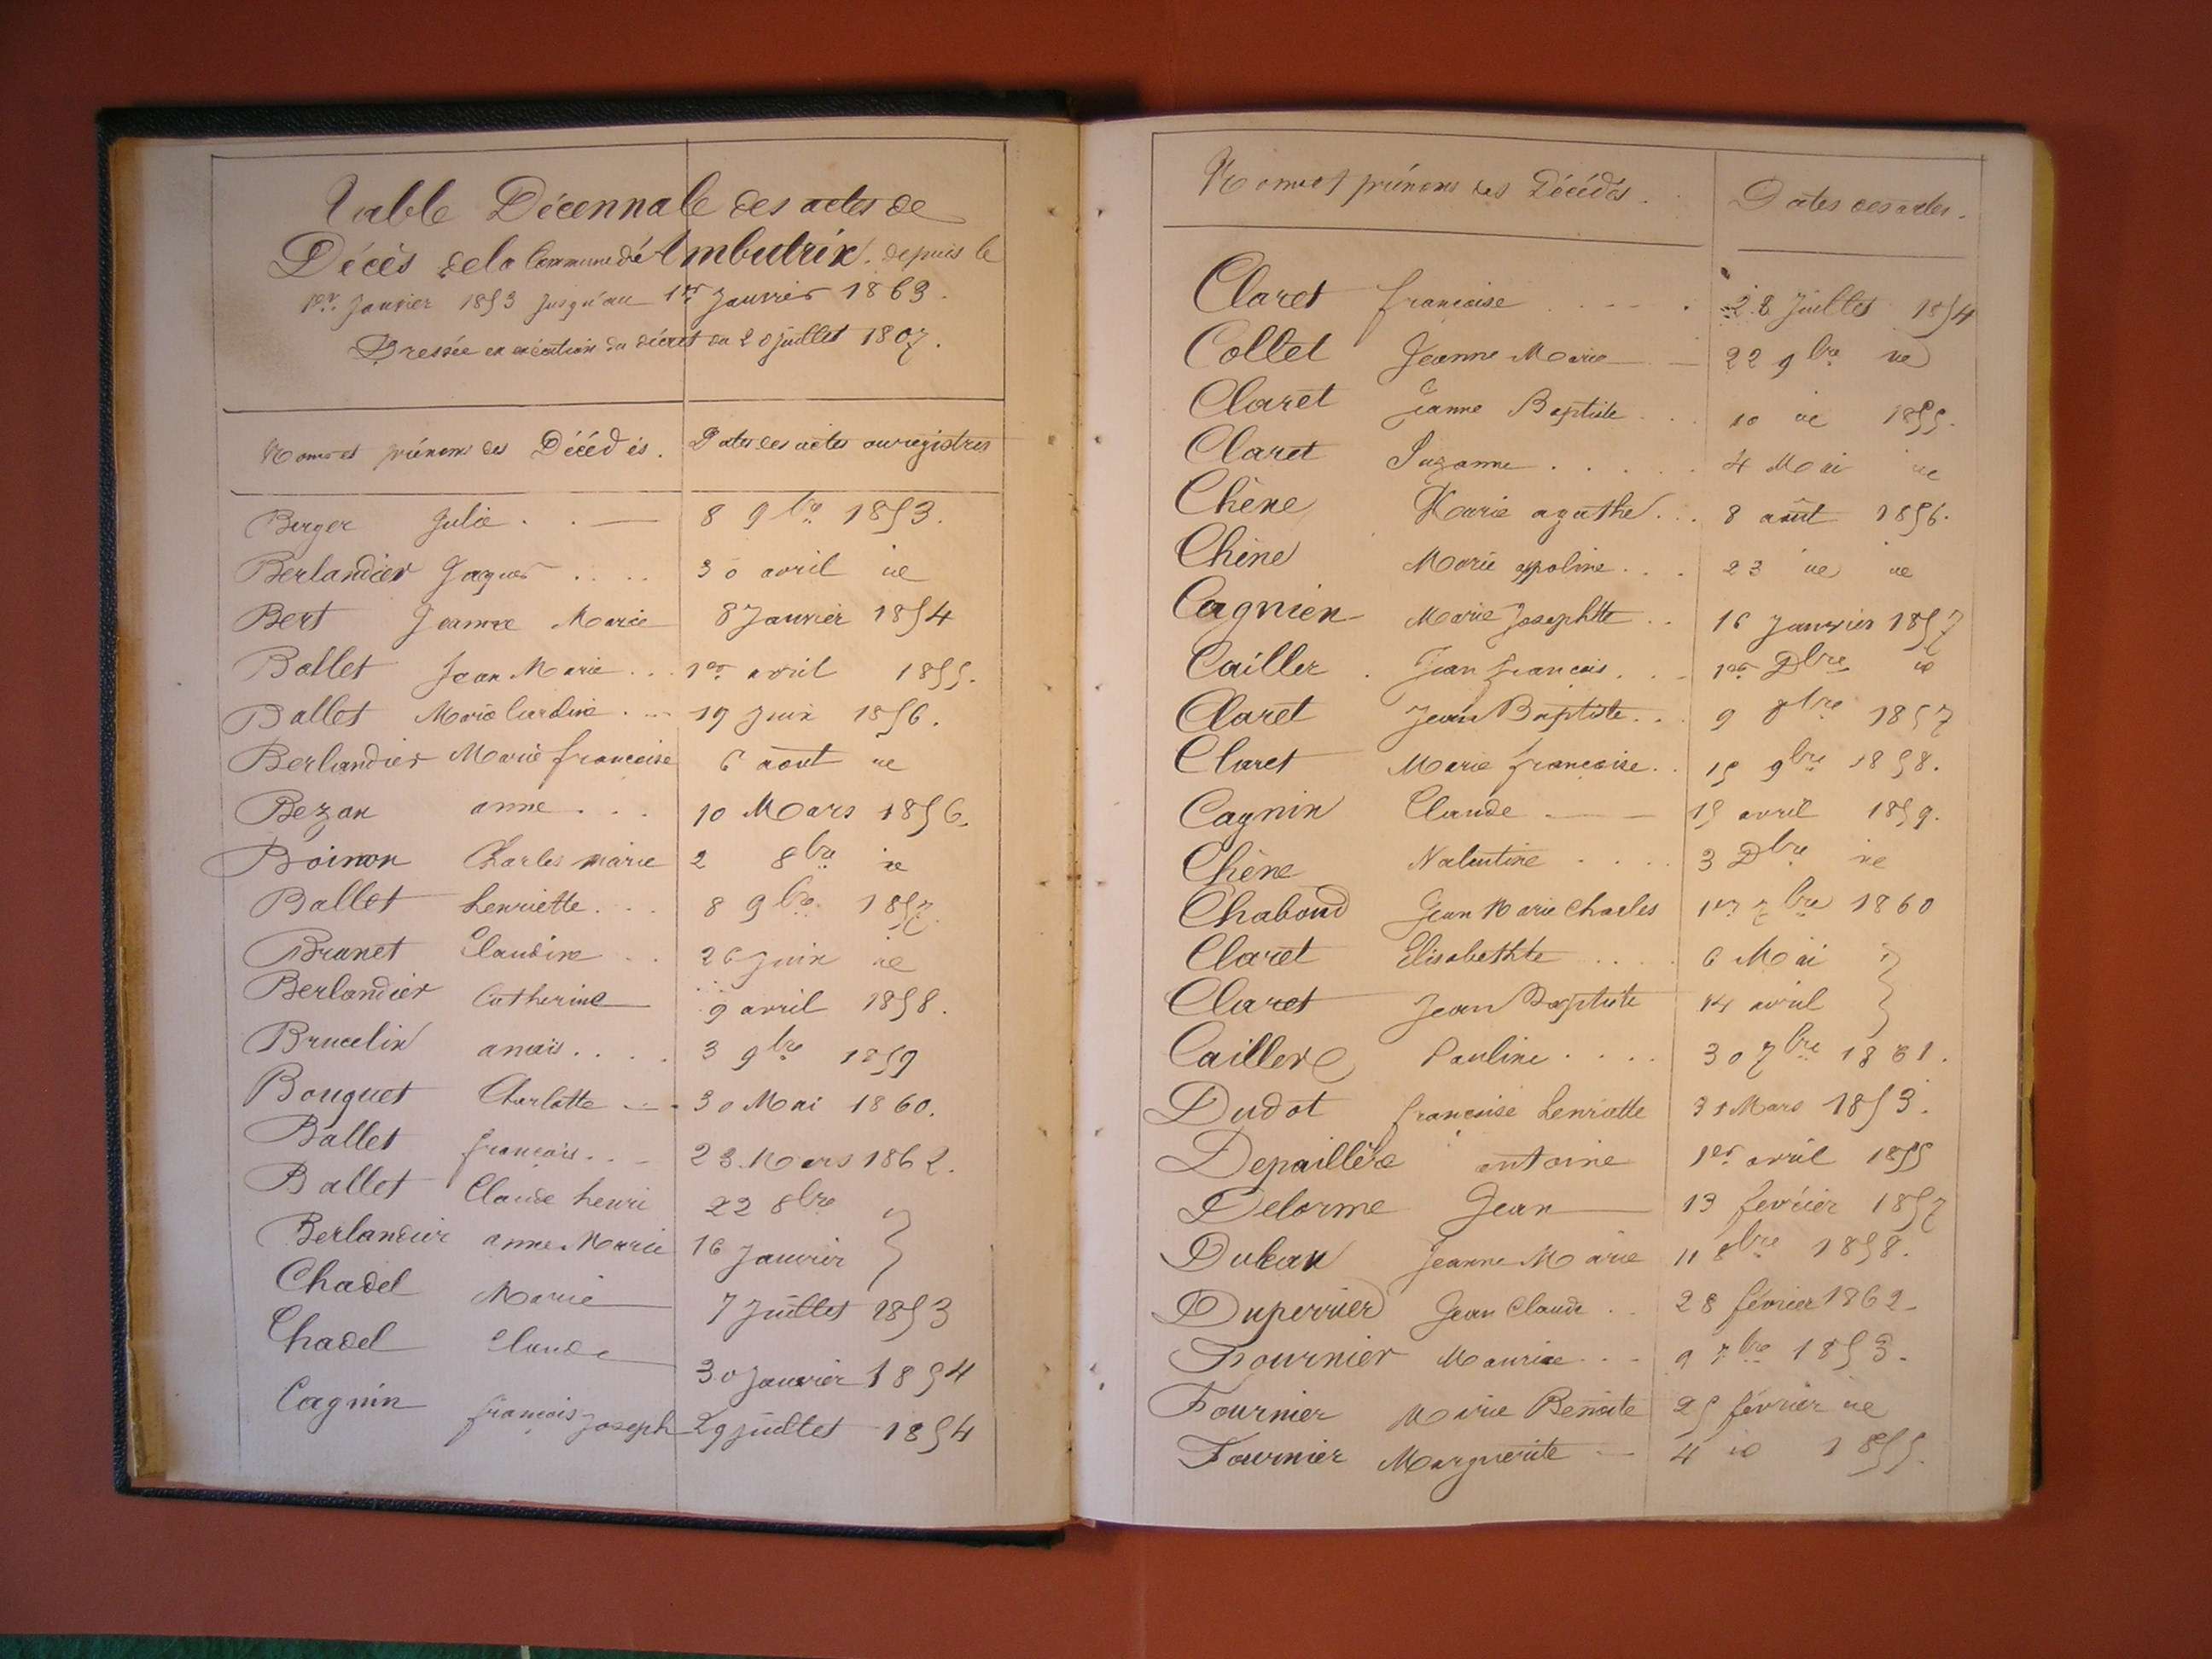 Table Décennale des actes de
Décès de la Commune d'Ambutrix. depuis le
1er. Janvier 1853 jusqu'au 1er Janvier 1863.
Dressée en exécution du décret du 20 juillet 1807.
Noms et prénoms des Décédés. Dates des actes aux registres
Berger Julie . . — 8 9bre 1853.
Berlandier Jaques . . . . 30 avril id
Bert Jeanne Marie 8 Janvier 1854
Ballet Jean Marie . . . 1er avril 1855.
Ballet Marie Claudine . . . 19 Juin 1856.
Berlandier Marie francoise 6 août id
Bezan anne . . . 10 Mars 1856.
Boinon Charles marie 2 8bre id
Ballet henriette . . . 8 9bre 1857.
Brunet Claudine . . 26 Juin id
Berlandier Catherine 9 avril 1858.
Brucelin anais . . . . 3 9bre 1859
Bouquet Charlotte — . 30 Mai 1860.
Ballet françois . . — 23 Mars 1862.
Ballet Claude henri 22 8bre
Berlandier anne Marie 16 Janvier
Chadel Marie 7 Juillet 1853
Chadel Claude 30 Janvier 1854
Cagnin françois Joseph 29 juillet 1854
Noms et prénoms des Décédés. Dates des actes.
Claret francoise . . . . 28 Juillet 1854
Collet Jeanne Marie — 22 9bre id
Claret Jeanne Baptiste . . 10 id 1855.
Claret Suzanne . . . . . 4 Mai id
Chêne Marie agathe . . . 8 août 1856.
Chêne Marie appoline . . . 23 id id
Cagnien Marie Josephtte . . 16 Janvier 1857
Cailler . Jean françois . . 1er Dbre id
Claret Jean Baptiste . . 9 8bre 1857
Claret Marie françoise . . 15 9bre 1858.
Cagnin Claude — 15 avril 1859.
Chêne Valentine . . . . 3 Dbre id
Chaboud Jean Marie Charles 1er 7bre 1860
Claret Elisabethte . . . . 6 Mai
Claret Jean Baptiste 14 avril
Caillere Pauline . . . . 30 7bre 1861.
Dudot françoise henriette 31 Mars 1853.
Depaillère antoine 1er avril 1855
Delorme Jean 13 fevrier 1857
Jeanne Marie 11 8bre 1858.
Duperrier Jean Claude . . 28 février 1862
Fournier Maurice . . — 9 7bre 1853.
Fournier Marie Benoite 25 février id
Fournier Marguerite — 4 id 1855.